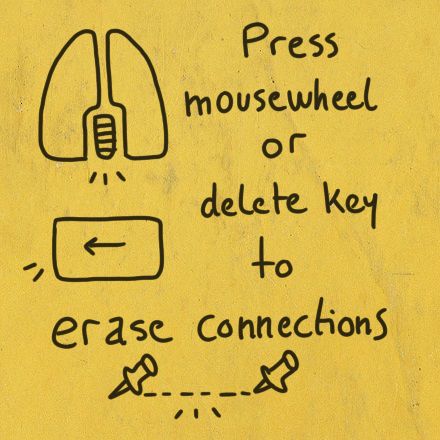 Press
mousewheel
or
delete key
to
erase connections